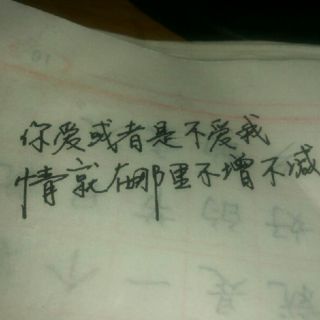 你爱或者是不爱我
情就在哪里不增不减